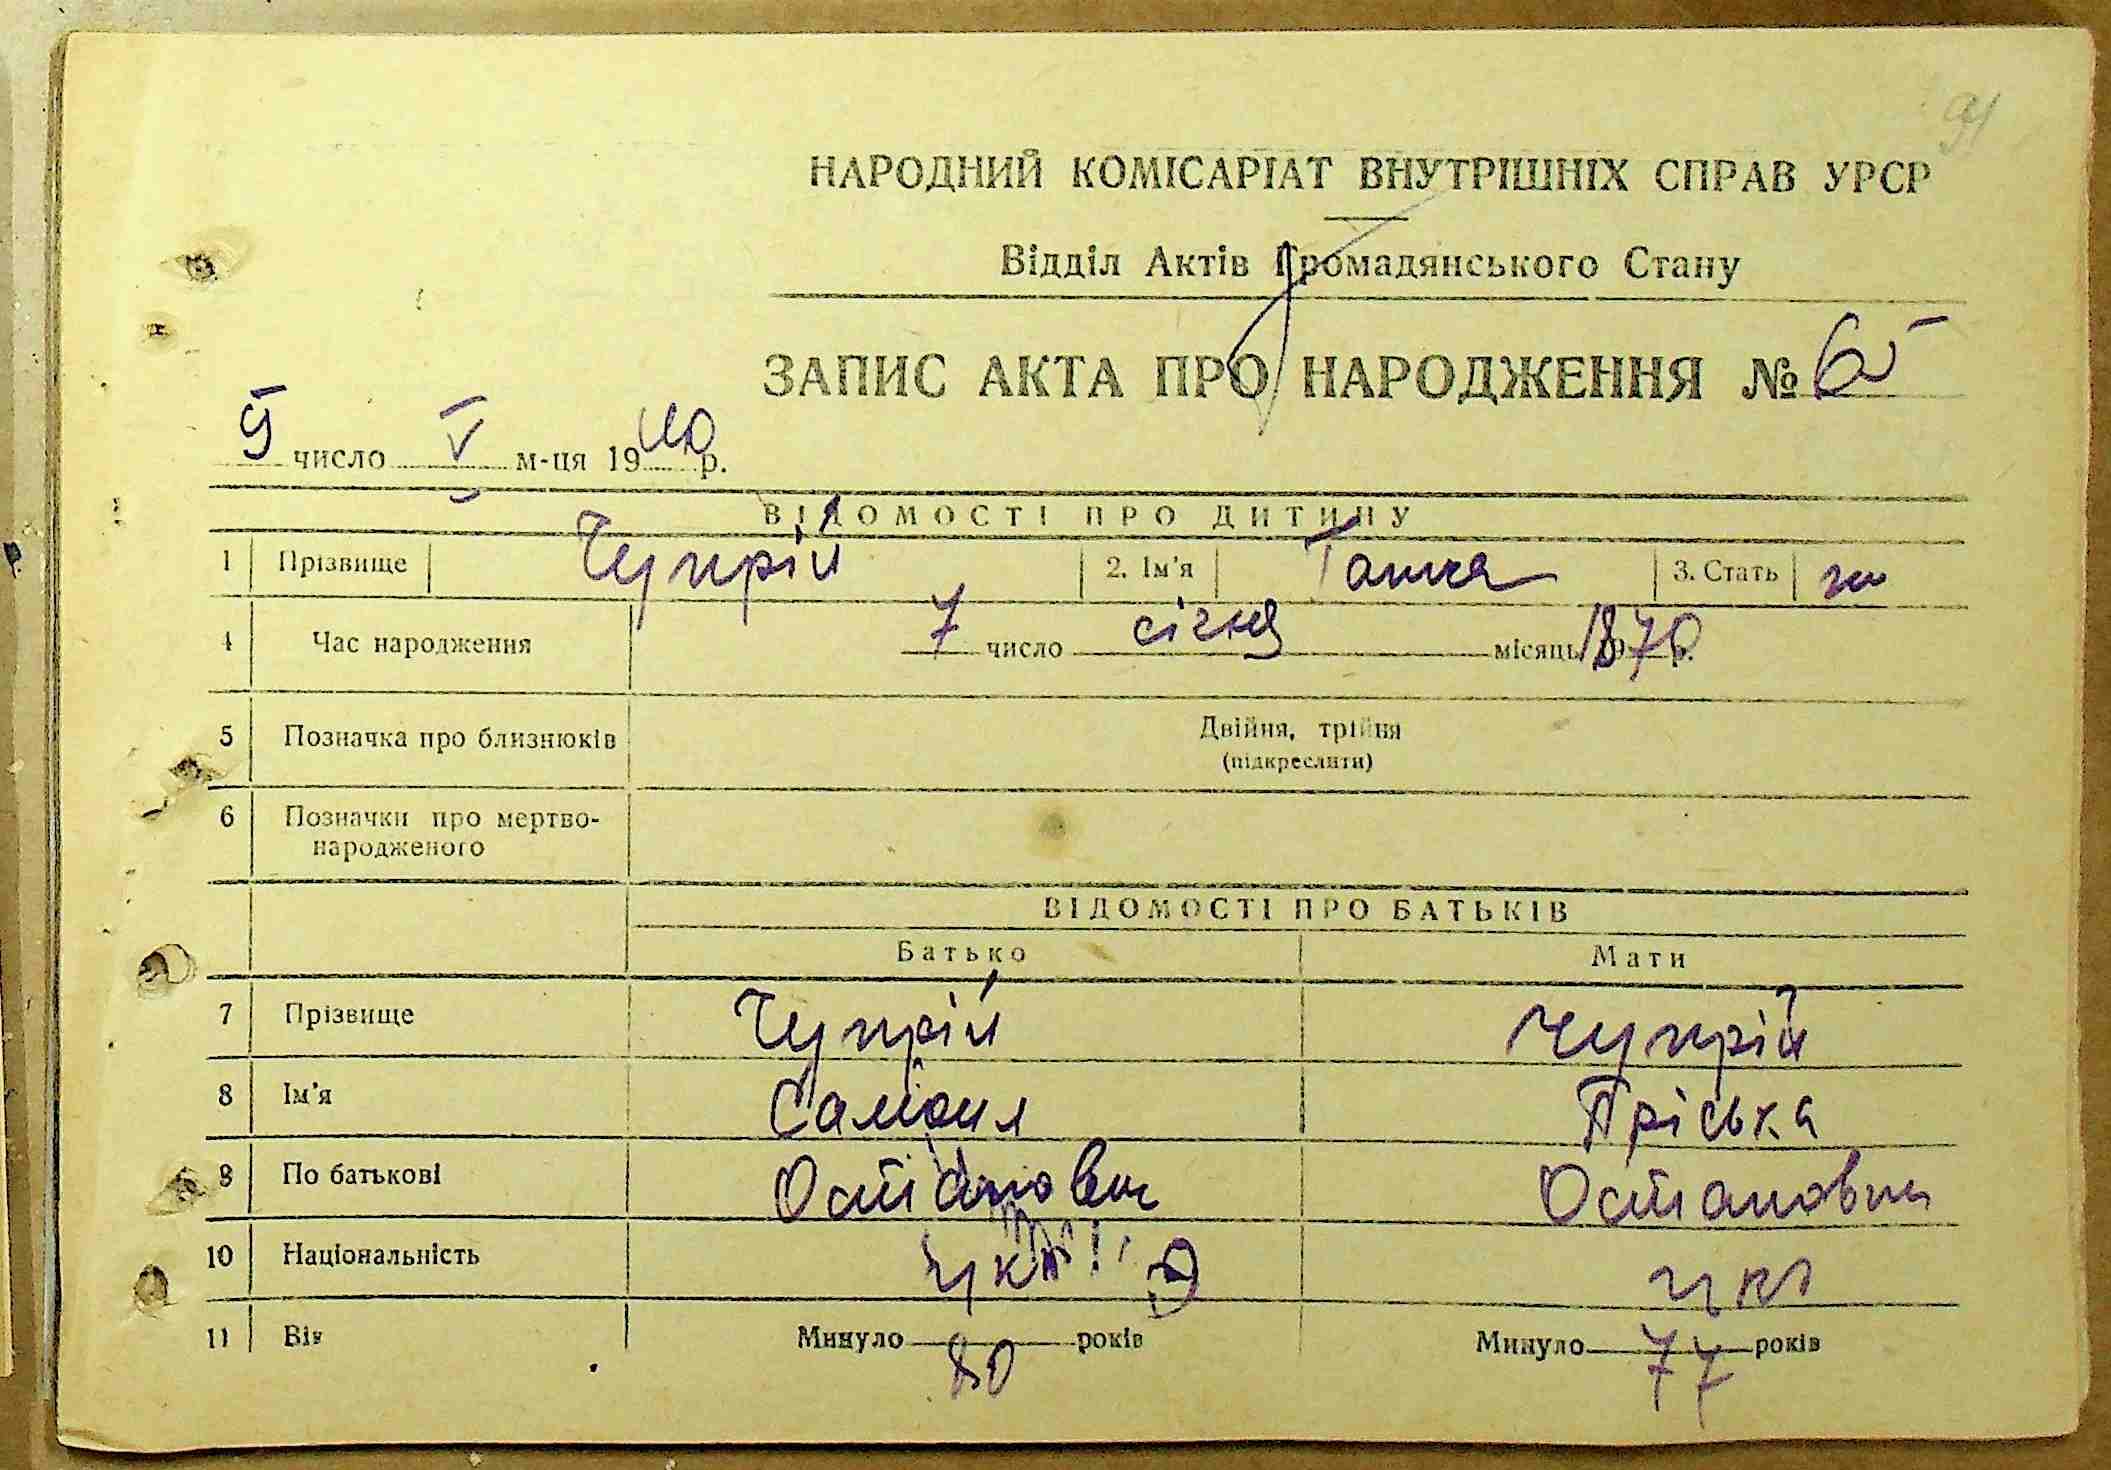 91
НАРОДНИЙ КОМІСАРІАТ ВНУТРІШНІХ СПРАВ УРСР
Відділ Актів Громадянського Стану
ЗАПИС АКТА ПРО НАРОДЖЕННЯ № 65
9 число V м-ця 1940 р.
ВІДОМОСТІ ПРО ДИТИНУ
1 Прізвище Чупрій 2. Ім'я Ганна 3. Стать ж
4 Час народження 7 число січня місяць 1870 р.
5 Позначка про близнюків Двійня, трійня
(підкреслити)
6 Позначки про мертво-
народженого
ВІДОМОСТІ ПРО БАТЬКІВ
Батько Мати
7 Прізвище Чупрій Чупрій
8 Ім'я Саміил Пріська
9 По батькові Остапович Остаповна
10 Національність укр укр
11 Вік Минуло 80 років Минуло 77 років